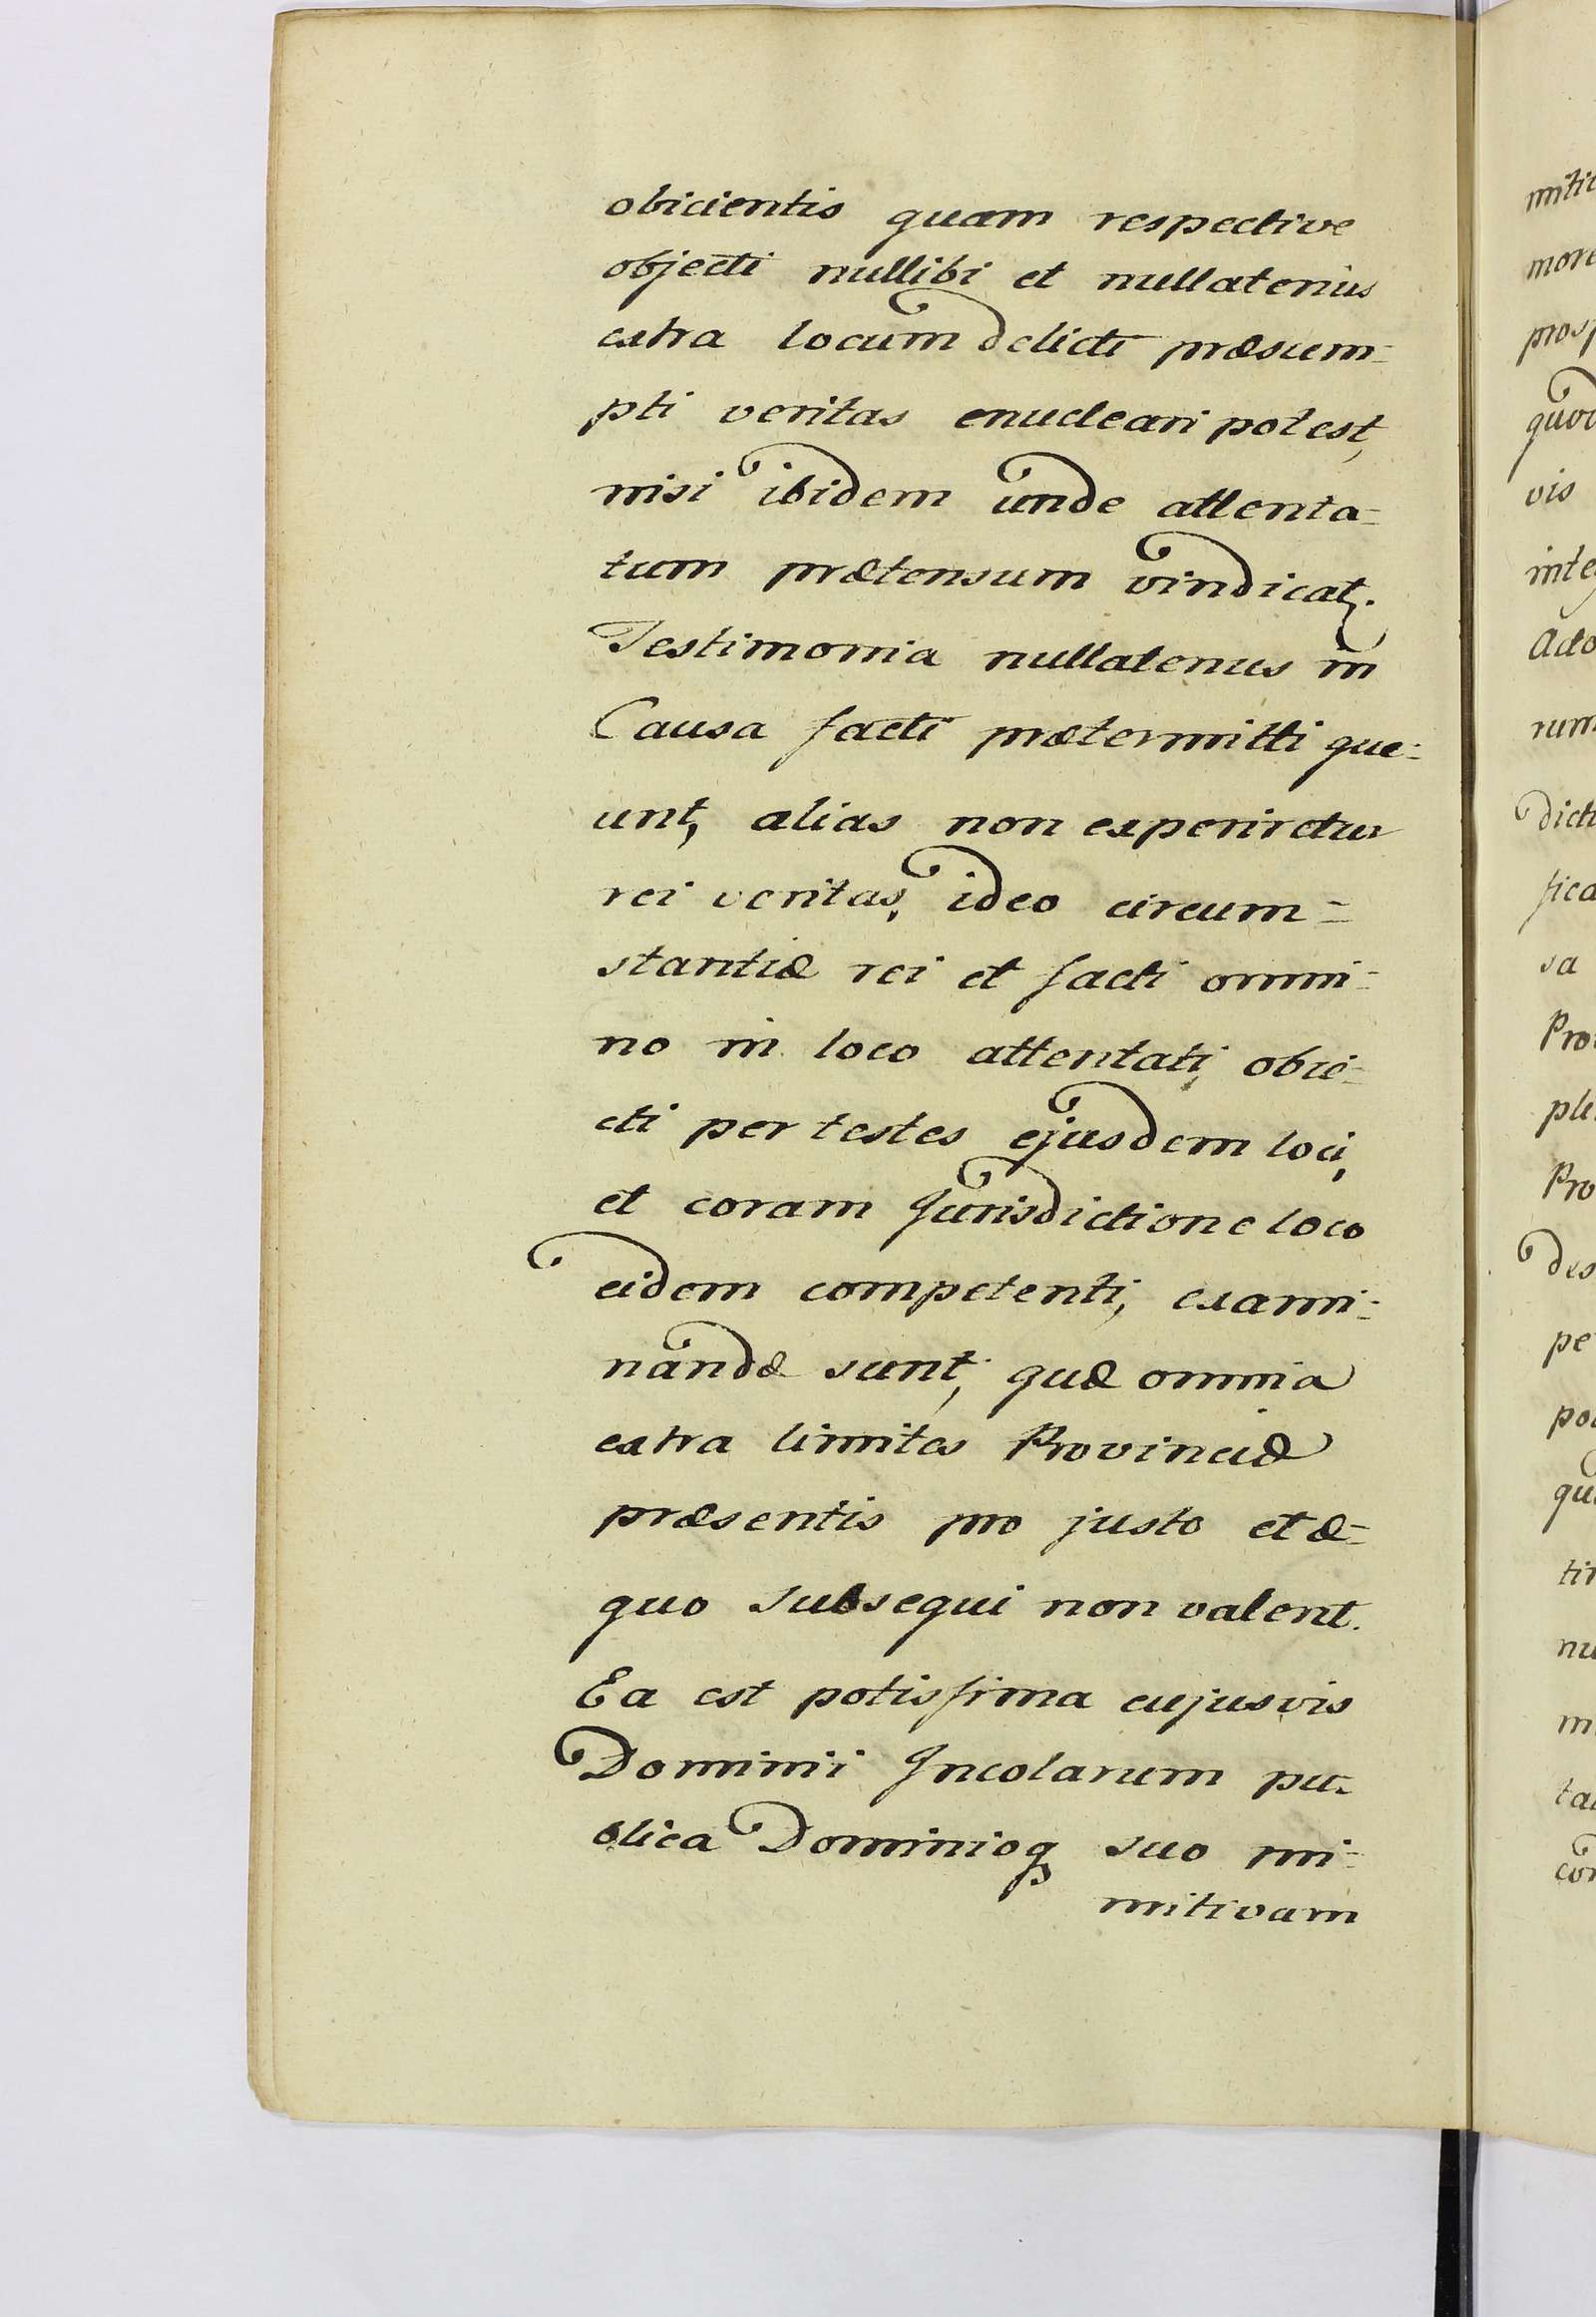 obicientis quam respective
objecti nullibi et nullatenus
extra locum delicti præsum=
pti veritas enucleari potest,
nisi ibidem unde attenta=
tum prætensum vindicat;
Testimonia nullatenus in
Causa facti prætermitti que=
unt, alias non experiretur
rei veritas, ideo circum=
stantiæ rei et facti omni=
no in loco attentati, obie=
cti per testes ejusdem loci,
et coram Jurisdictione loco
eidem competenti, exami=
nandæ sunt, quæ omnia
extra limites Provinciæ
præsentis pro justo et æ=
quo subsequi non valent.
Ea est potissima cujusvis
Dominii Incolarum pu=
blica Dominioq suo mi=
mitivam
miti
more
prosp
quod
vis
inte
Acto
rum
dicti
fica
sa
Pro
ple
Pro
des
pe
po
qu
tin
nu
m
ta
con